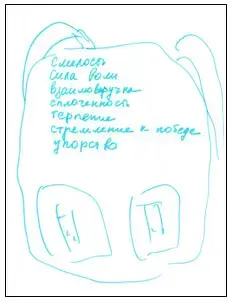 Смелость
Сила воли
взаимовыручка
сплоченность
терпение
стремление к победе
упорство